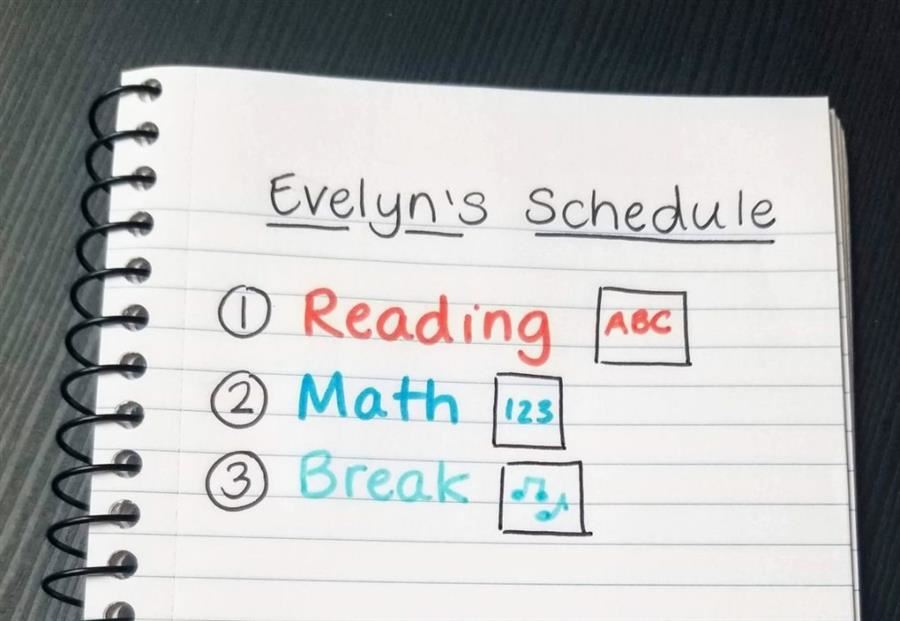 Evelyn's Schedule
① Reading ABC
② Math 123
③ Break